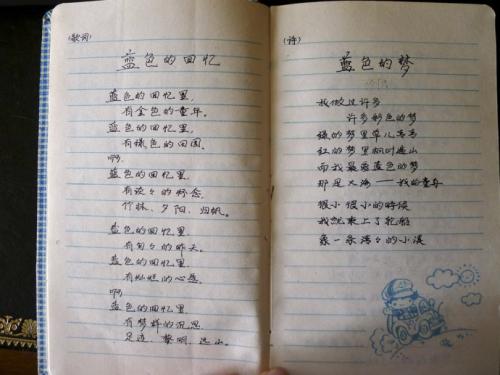 (歌词)
蓝色的回忆
蓝色的回忆里,
有金色的童年。
蓝色的回忆里,
有绿色的田园。
啊,
蓝色的回忆里
有淡々的怀念,
竹林、夕阳、归帆。
蓝色的回忆里
有匆々的昨天。
蓝色的回忆里,
有灿烂的心愿。
啊,
蓝色的回忆里
有梦样的沉思
足迹、黎明、远山。
(诗)
蓝色的梦
我做过许多
许多彩色的梦
绿的梦里草儿青青
红的梦里枫叶遍山
而我最爱蓝色的梦
那是大海——我的童年
很小很小的时候
我就乘上了轮船
象一条湾々的小溪